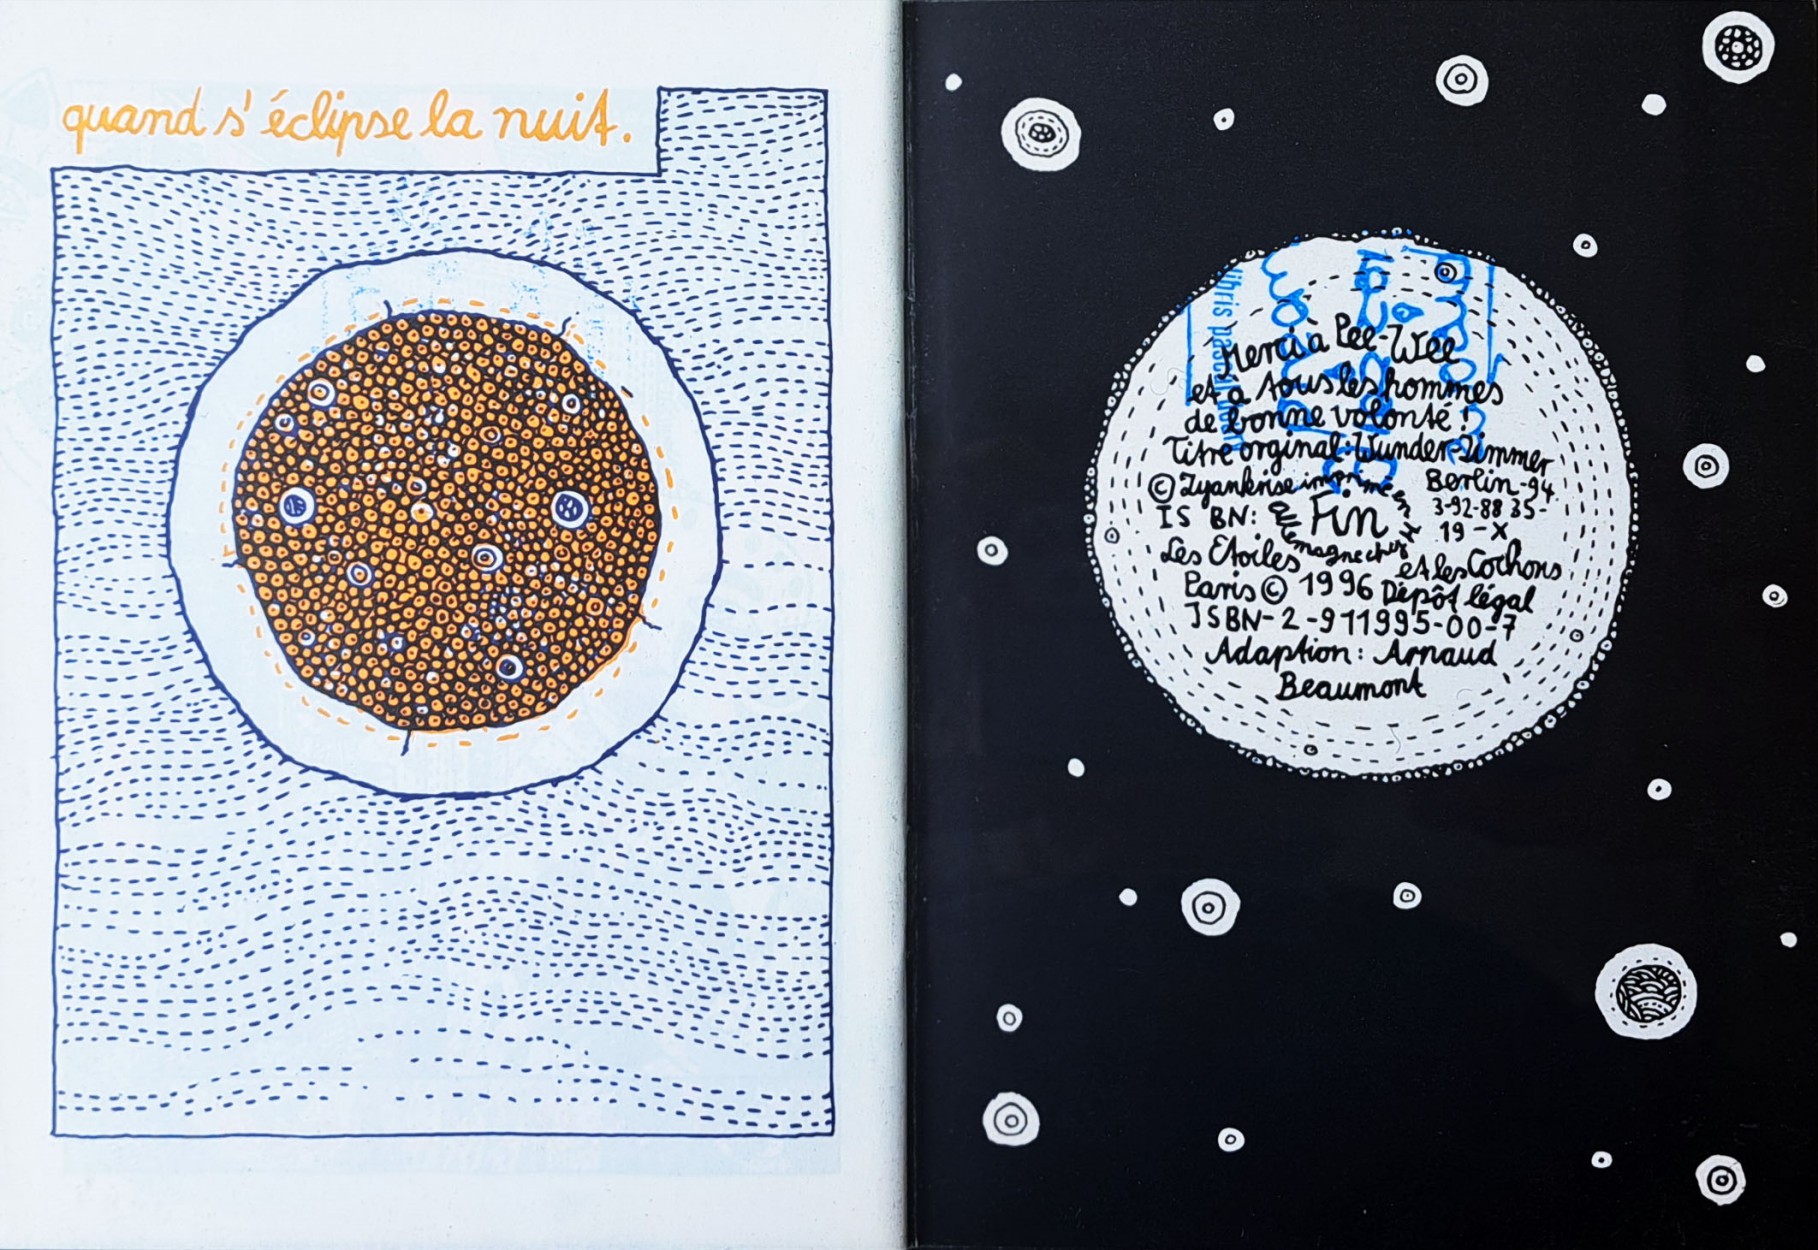 quand s'éclipse la nuit.
Merci à Pee-Wee
et à tous les hommes
de bonne volonté !
Titre orginal: Wunder-Zimmer
© Zyankrise imprimé en Berlin-94
ISBN: Fin 3-92-88 35-
19-X
Allemagne chez
Les Etoiles et les Cochons
Paris © 1996 Dépôt légal
ISBN-2-911995-00-7
Adaption: Arnaud
Beaumont